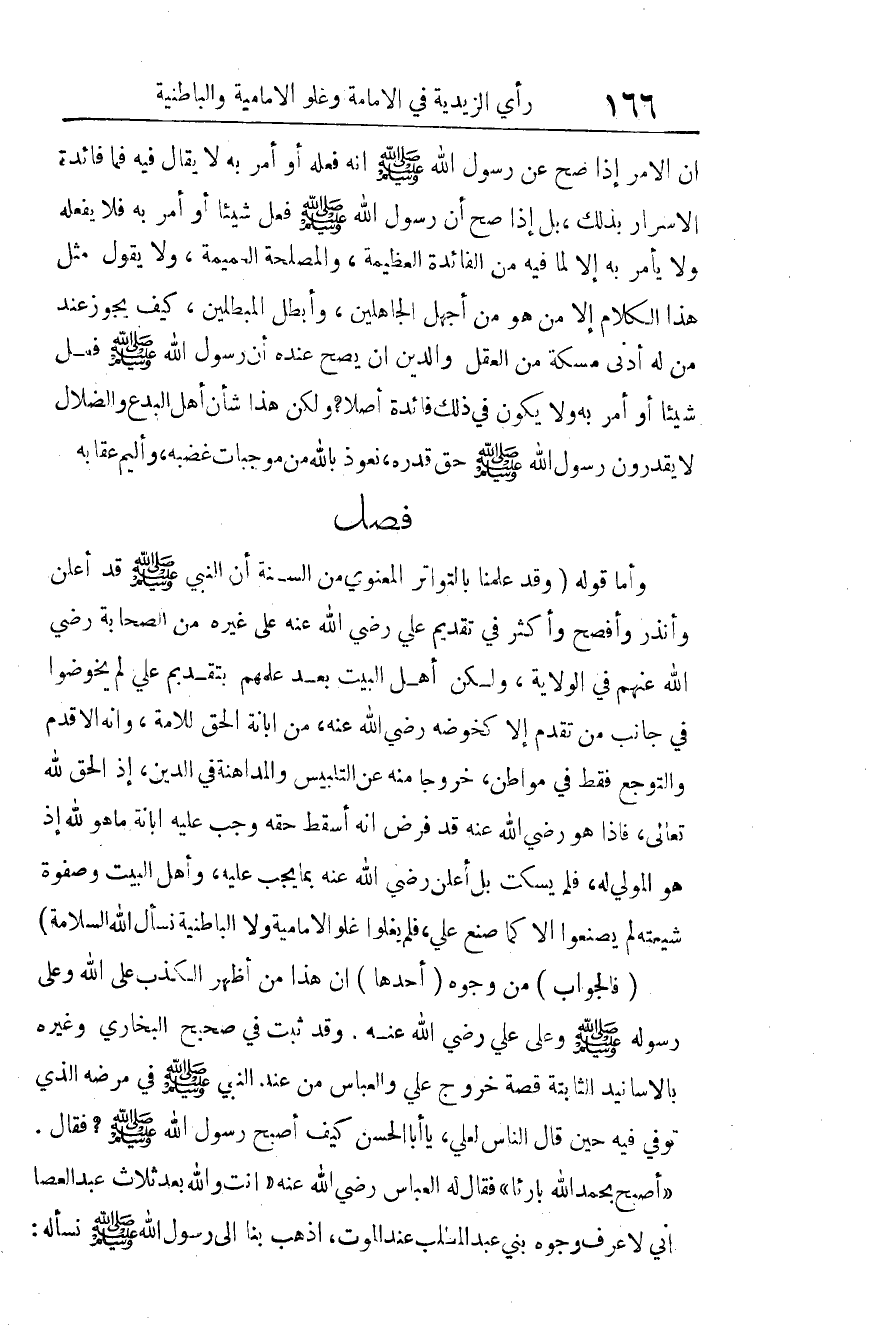 ١٦٦ رأي الزيدية في الامامة وغلو الامامية والباطنية
ان الامر إذا صح عن رسول الله ﷺ انه فعله أو أمر به لا يقال فيه فما فائدة
الاسرار بذلك ، بل إذا صح أن رسول الله ﷺ فعل شيئا أو أمر به فلا يفعله
ولا يأمر به إلا لما فيه من الفائدة العظيمة ، والمصلحة العميمة ، ولا يقول مثل
هذا الكلام إلا من هو من أجهل الجاهلين ، وأبطل المبطلين ، كيف يجوز عند
من له أدنى مسكة من العقل والدين ان يصح عنده أن رسول الله ﷺ فعل
شيئا أو أمر به ولا يكون في ذلك فائدة أصلا؟ ولكن هذا شأن أهل البدع والضلال
لا يقدرون رسول الله ﷺ حق قدره، نعوذ بالله من موجبات غضبه، وأليم عقابه
فصل
وأما قوله ( وقد علمنا بالتواتر المعنوي من السنة أن النبي ﷺ قد أعلن
وأنذر وأفصح وأكثر في تقديم علي رضي الله عنه على غيره من الصحابة رضي
الله عنهم في الولاية ، ولكن أهل البيت بعد علمهم بتقديم علي لم يخوضوا
في جانب من تقدم إلا كخوضه رضي الله عنه، من ابانة الحق للامة ، وانه الاقدم
والتوجع فقط في مواطن، خروجا منه عن التلبيس والمداهنة في الدين، إذ الحق لله
تعالى، فاذا هو رضي الله عنه قد فرض انه أسقط حقه وجب عليه ابانة ما هو لله إذ
هو المولي له، فلم يسكت بل أعلن رضي الله عنه بما يجب عليه، وأهل البيت وصفوة
شيعته لم يصنعوا الا كما صنع علي، فلم يغلوا غلو الامامية ولا الباطنية نسأل الله السلامة)
( فالجواب ) من وجوه ( أحدها ) ان هذا من أظهر الكذب على الله وعلى
رسوله ﷺ وعلى علي رضي الله عنه . وقد ثبت في صحيح البخاري وغيره
بالاسانيد الثابتة قصة خروج علي والعباس من عند النبي ﷺ في مرضه الذي
توفي فيه حين قال الناس لعلي، يا أبا الحسن كيف أصبح رسول الله ﷺ ؟ فقال .
«أصبح بحمد الله بارئا» فقال له العباس رضي الله عنه «انت والله بعد ثلاث عبد العصا
اني لاعرف وجوه بني عبد المطلب عند الموت، اذهب بنا الى رسول الله ﷺ نسأله: